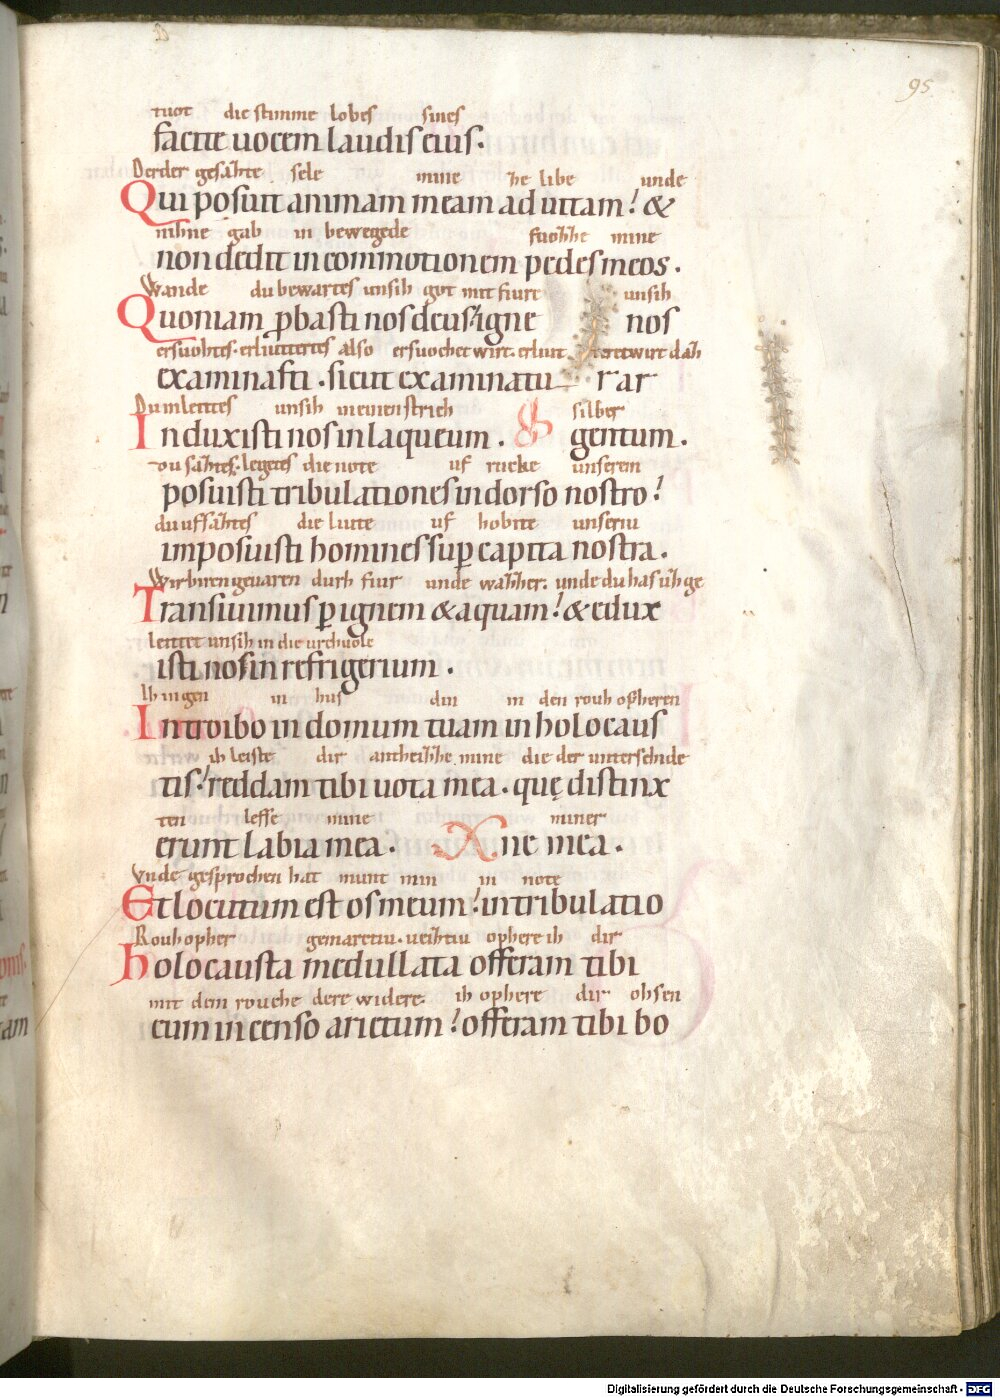 95
tuot die stimme lobes sines
facite uocem laudis eius.
Derder gesazte sele mine ze libe unde
Qui posuit animam meam ad uitam! &
nihne gab in bewegede fuozze mine
non dedit in commotionem pedes meos.
Wande du bewartes unsih got mit fiure unsih
Quoniam pbasti nos deus! igne nos
ersuohtes. erliutteretes also ersuochet wirt. erliut
examinasti. sicut examinatur ar
Du inleittes unsih silber
Induxisti nos in laqueum. gentum.
leges die note uf rucke unserem
posuisti tribulationes in dorso nostro!
du ufsaztes die liute uf hobite unseriu
imposuisti homines sup capita nostra.
Wir biren geuaren durh fiur unde wazzer. unde du has uzge
Transiuimus p ignem & aquam! & edux
leittet unsih in die urchuole
isti nos in refrigerium.
Ih in gen in hus din in den rouh opheren
Introibo in domum tuam in holocaus
ih leiste dir antheizze mine die der unterschide
tis! reddam tibi uota mea. quę distinx
ten leffe mine miner
erunt labia mea. ne mea.
Vnde gesprochen hat munt min in note
Et locutum est os meum! in tribulatio
Rouhopher gemarctiu. ueihtiu ophere ih dir
Holocausta medullata offeram tibi
mit dem rouche dere widere. ih ophere dir ohsen
cum incenso arietum! offeram tibi bo
Digitalisierung gefördert durch die Deutsche Forschungsgemeinschaft - DFG